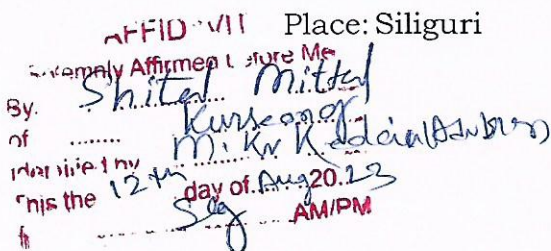 AFFIDAVIT Place: Siliguri
Solemnly Affirmed before Me
By. Shital Mittal
of Kurseong
Identified by M. Kr
This the 12th day of Aug 20.23
AM/PM